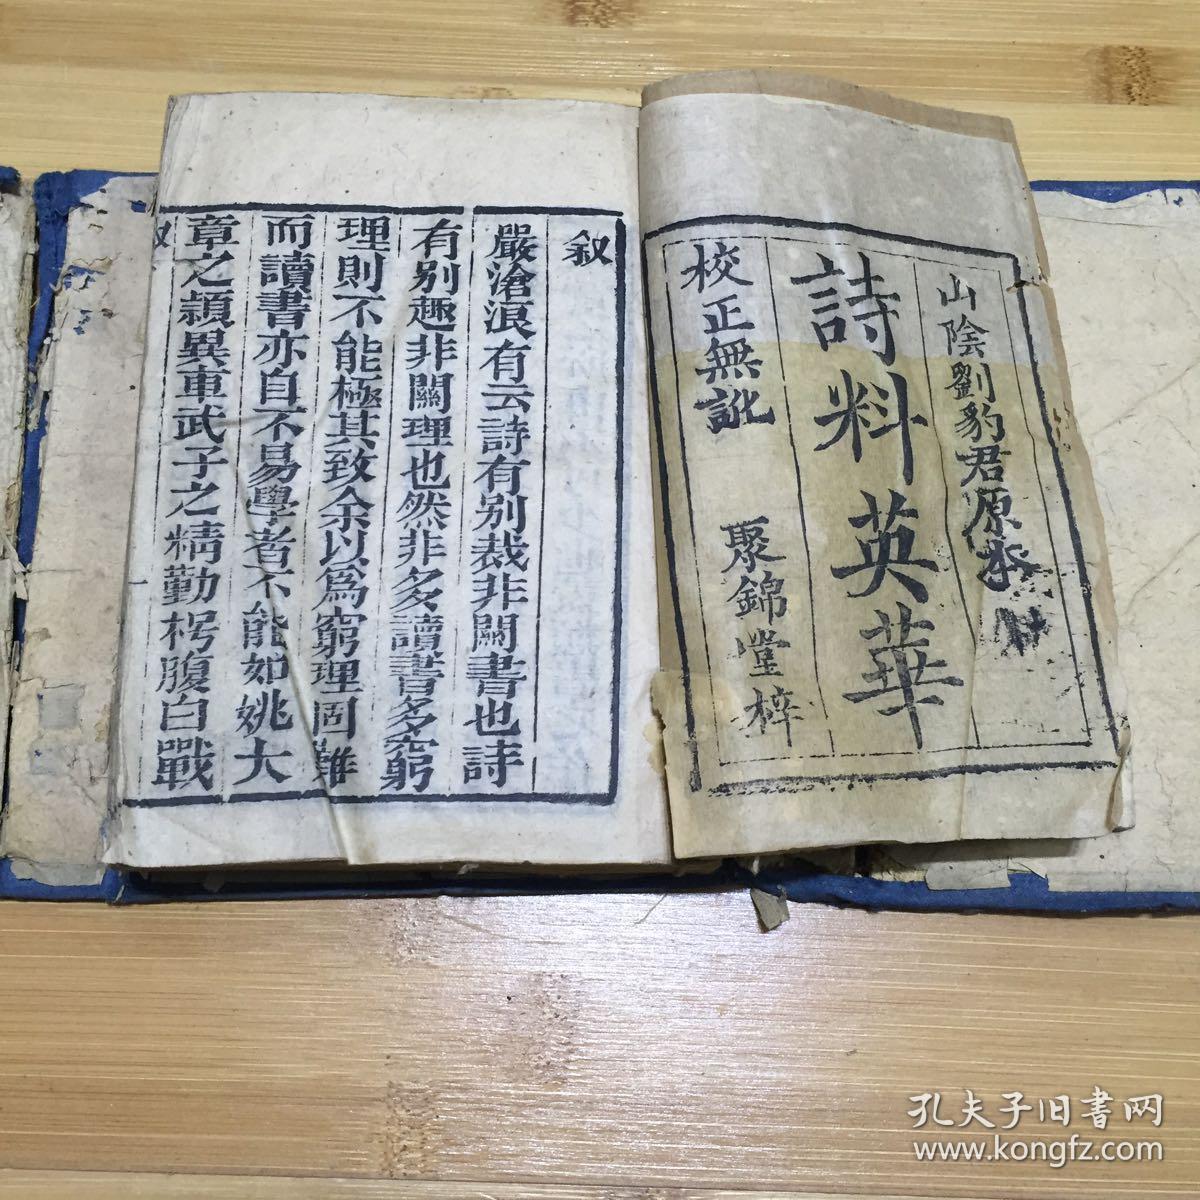 山陰劉豹君原本
詩料英華
校正無訛
聚錦堂梓
叙
嚴滄浪有云詩有别裁非關書也詩
有别趣非關理也然非多讀書多窮
理則不能極其致余以爲窮理固難
而讀書亦自不易學者不能如姚大
章之穎異車武子之精勤枵腹白戰
叙
一
孔夫子旧书网
www.kongfz.com